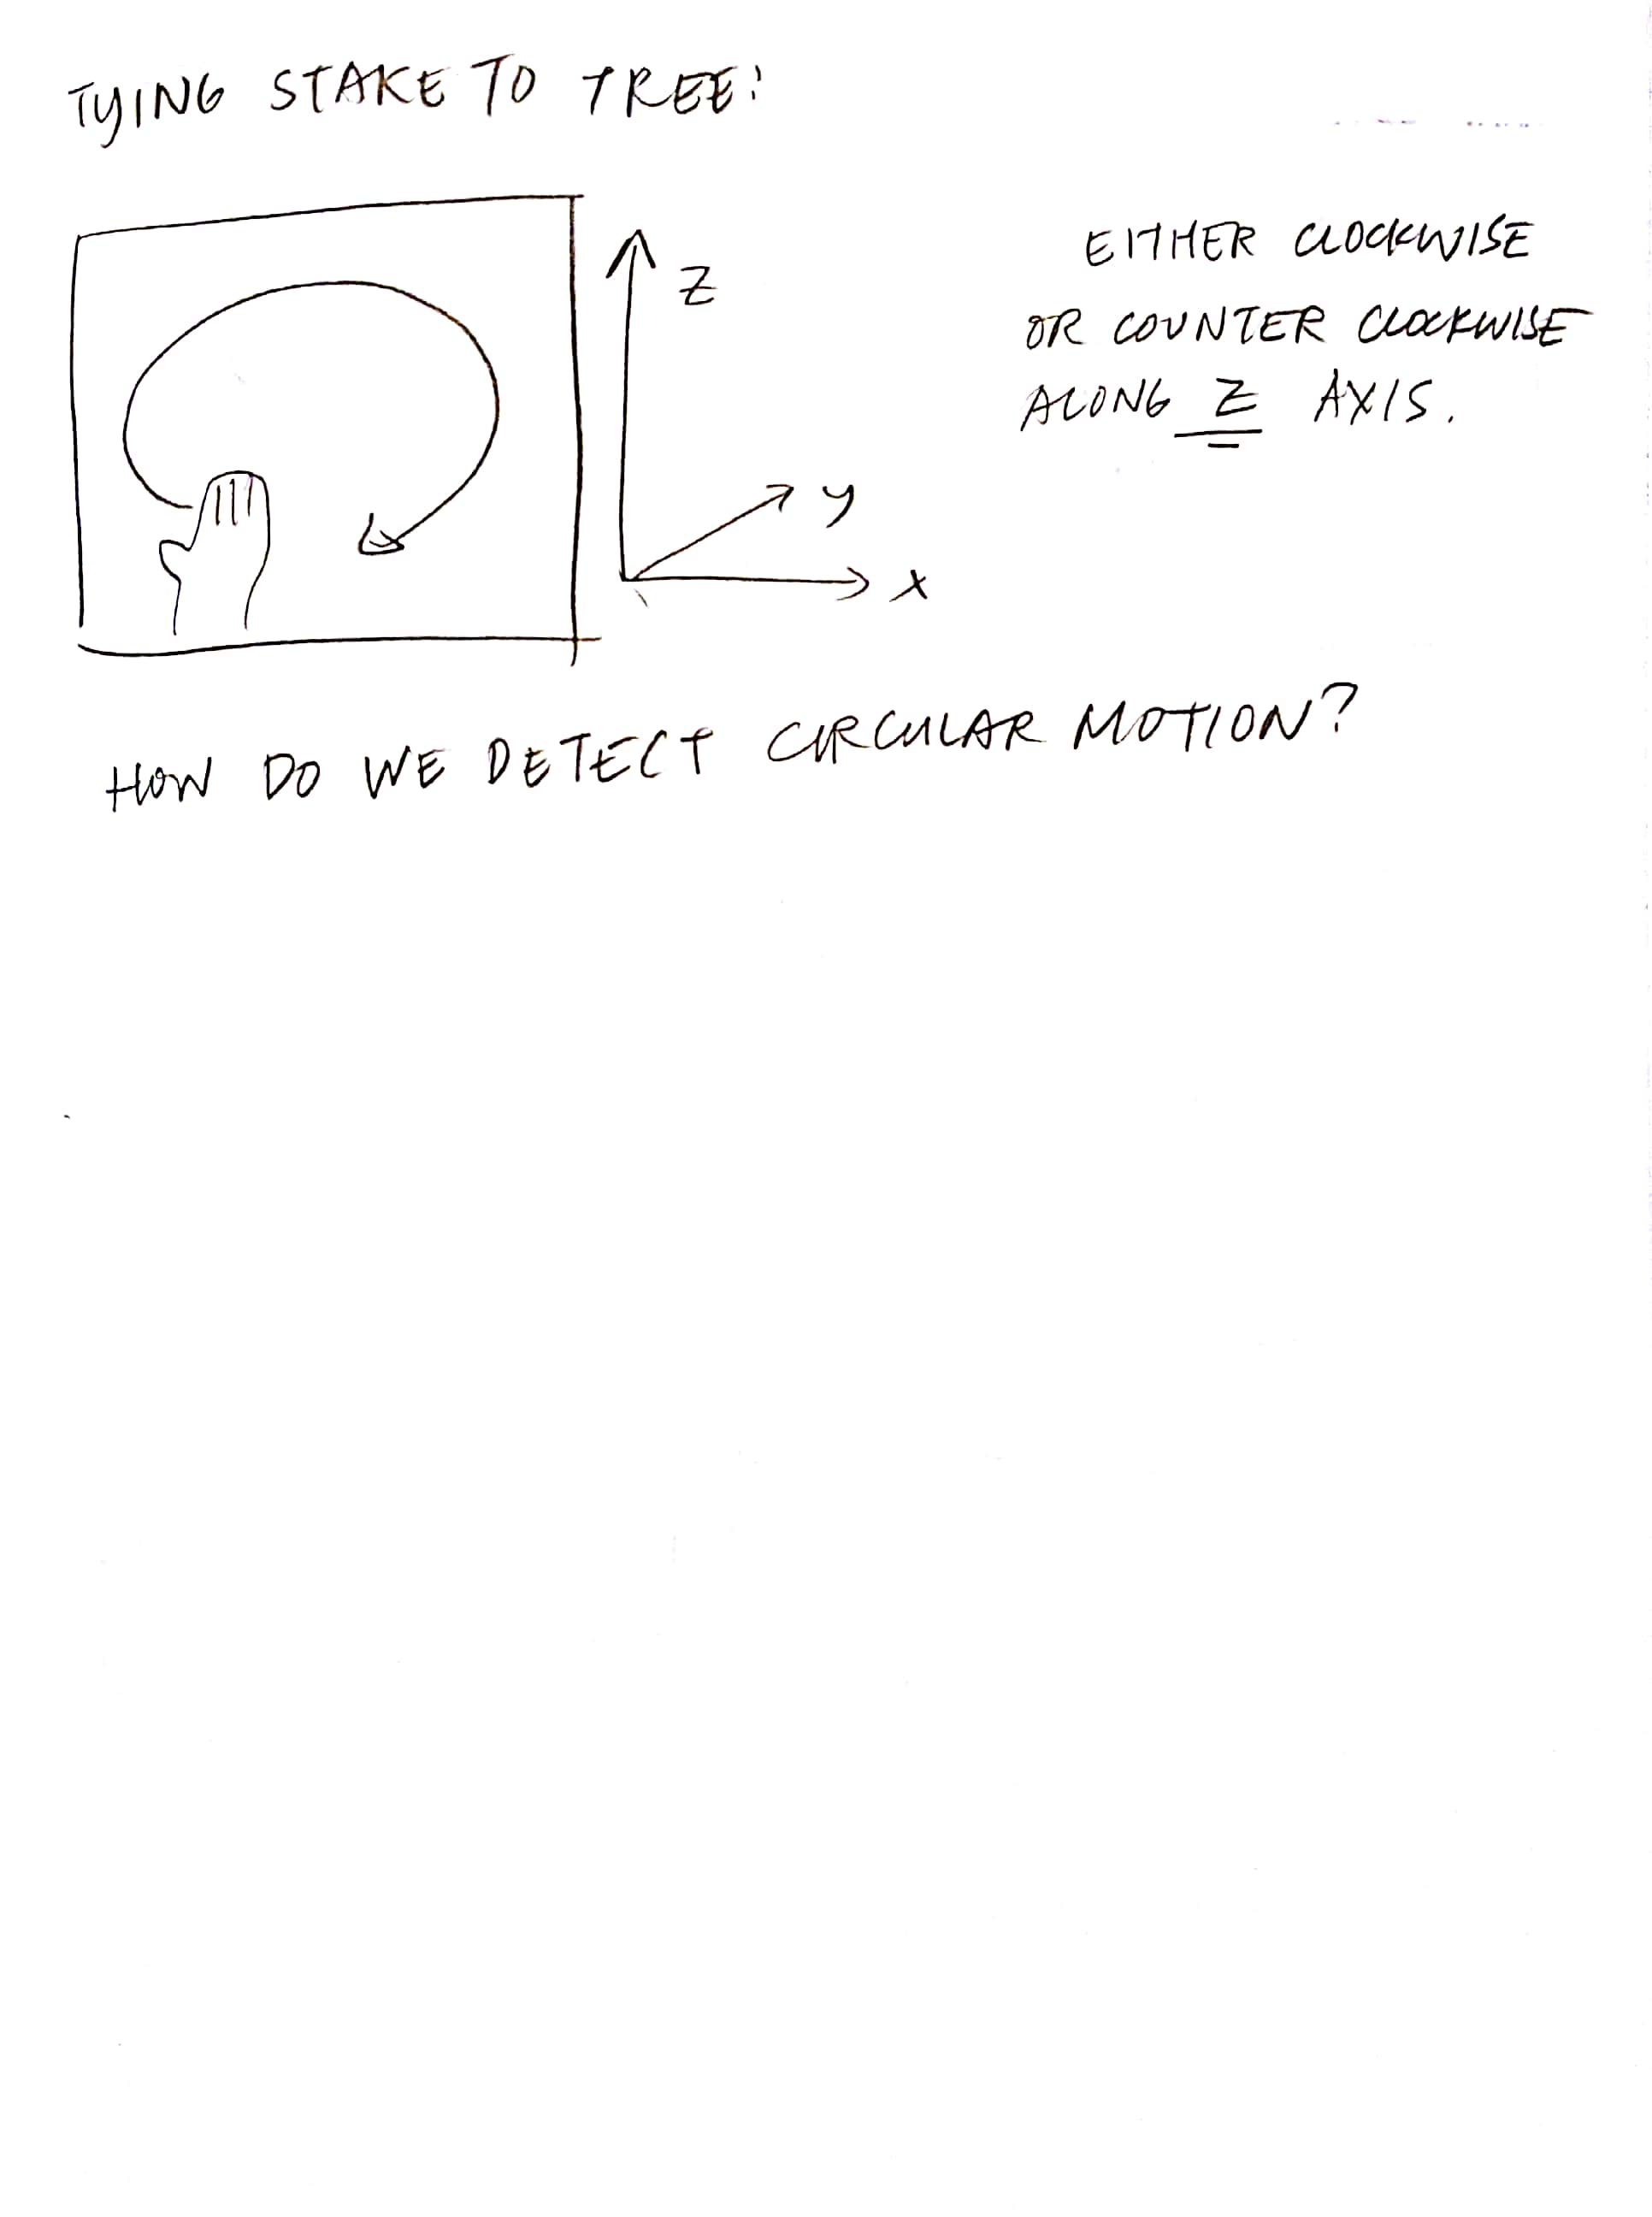 TYING STAKE TO TREE:
Z
EITHER CLOCKWISE
OR COUNTER CLOCKWISE
ALONG Z AXIS.
y
x
HOW DO WE DETECT CIRCULAR MOTION?